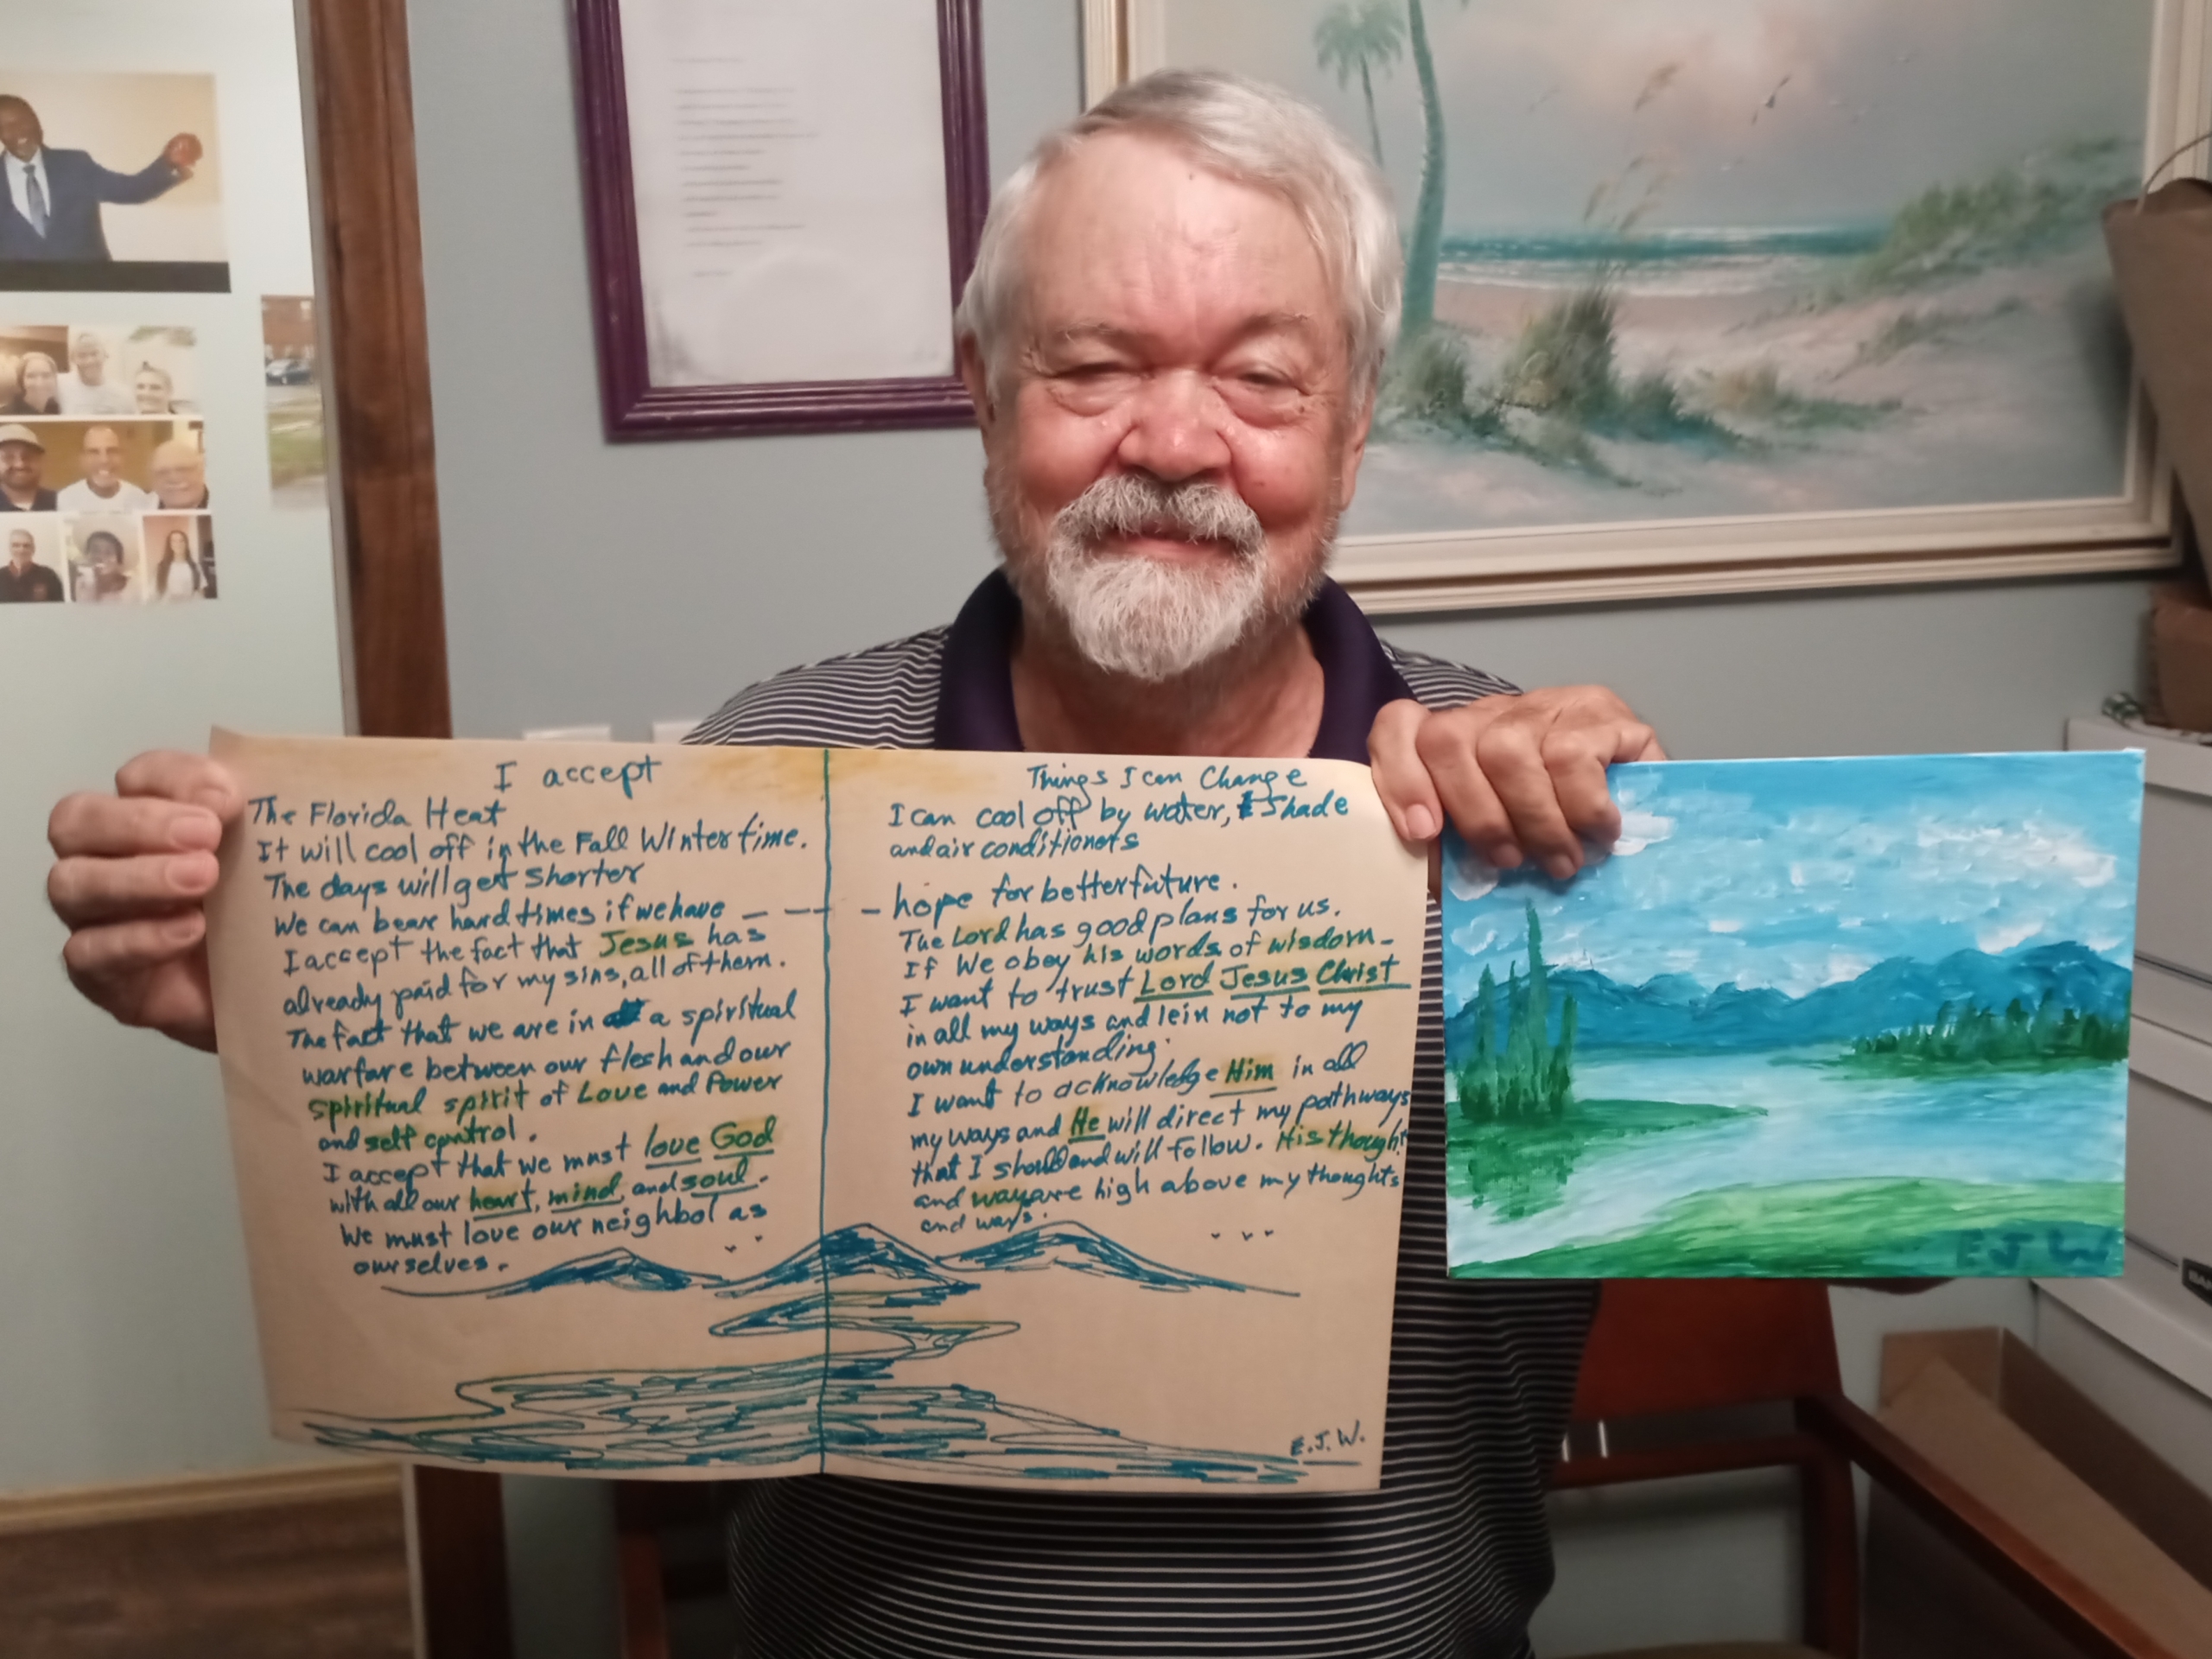 I accept
The Florida Heat
It will cool off in the Fall Winter time.
The days will get shorter
We can bear hard times if we have _ - - -
I accept the fact that Jesus has
already paid for my sins, all of them.
The fact that we are in a spiritual
warfare between our flesh and our
spiritual spirit of Love and Power
and self control.
I accept that we must love God
with all our heart, mind, and soul.
We must love our neighbor as
ourselves.
Things I can Change
I can cool off by water, Shade
and air conditioners
- hope for better future.
The Lord has good plans for us.
If We obey his words of wisdom-
I want to trust Lord Jesus Christ
in all my ways and lein not to my
own understanding.
I want to acknowledge Him in all
my ways and He will direct my pathways
that I should and will follow. His thought
and ways are high above my thoughts
and ways.
E.J.W.
E J W